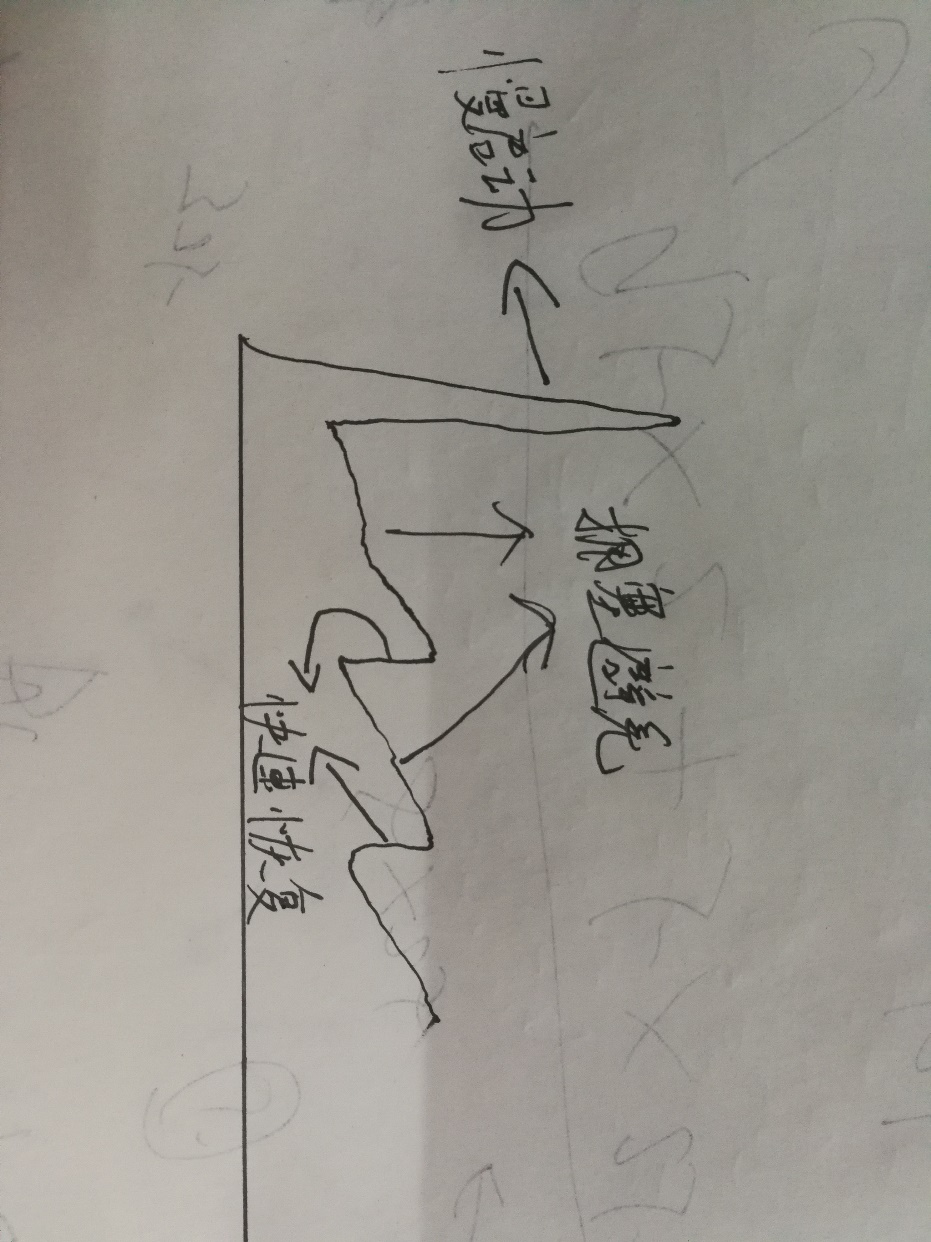 慢启动
拥塞避免
快速恢复